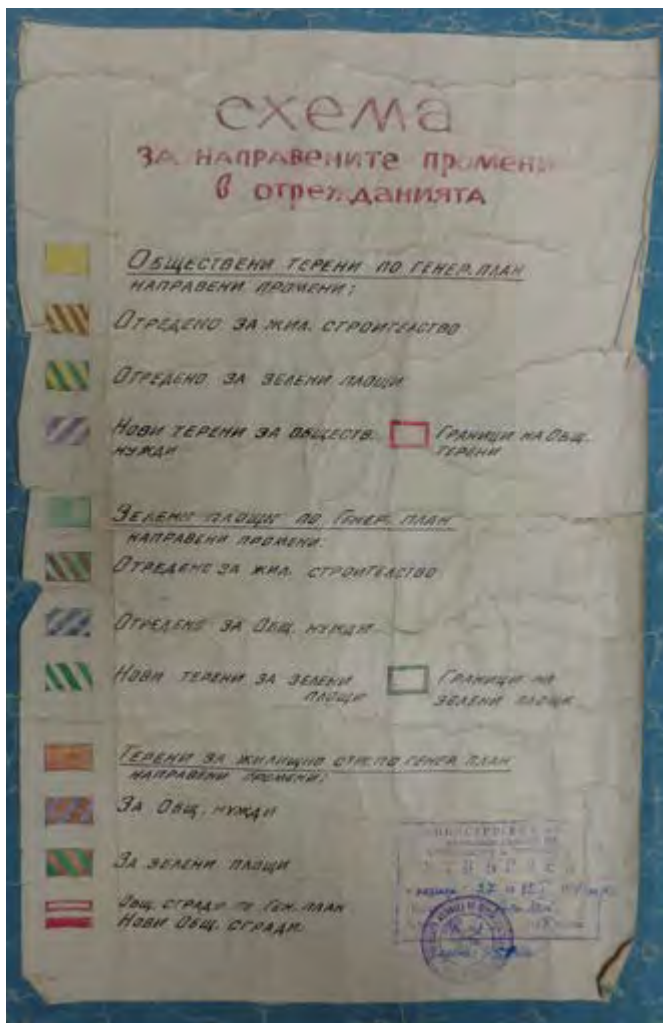 схема
за направените промени
в отрежданията
Обществени терени по генер. план
направени промени:
Отредено за жил. строителство
Отредено за зелени площи
Нови терени за обществ.
нужди
Граници на общ.
терени
Зелени площи по генер. план
направени промени:
Отредено за жил. строителство
Отредено за общ. нужди
Нови терени за зелени
площи
Граници на
зелени площи
Терени за жилищно стр. по генер. план
направени промени:
За общ. нужди
За зелени площи
Общ. сгради по ген. план
Нови общ. сгради